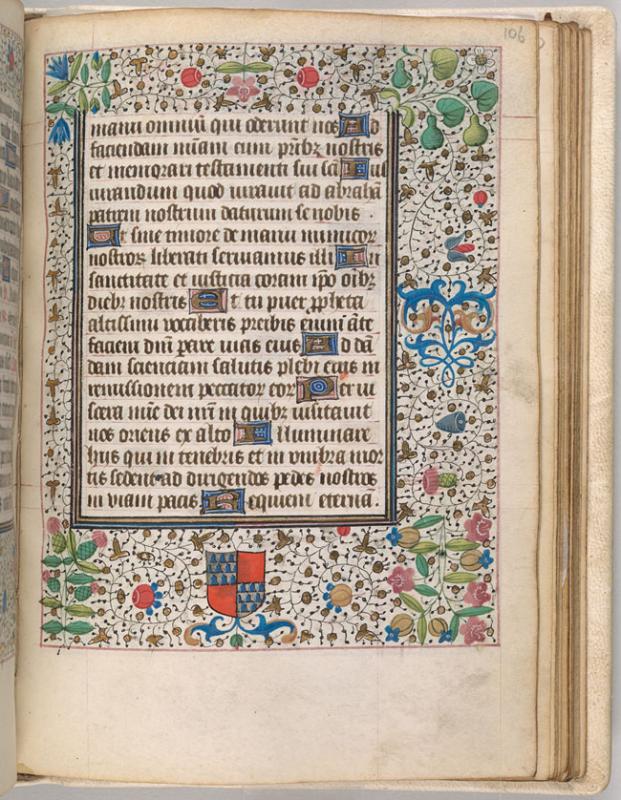 106
manu omniū qui oderunt nos A d
faciendam mīam cum prībȝ nostris
et memorari testamenti sui sā I us
iurandum quod iurauit ad abrahā
patrem nostrum daturum se nobis .
U t sine timore de manu inimicor
nostrorꝝ liberati seruiamus illi I n
sanctitate et iusticia coram ipō oībȝ
diebȝ nostris E t tu puer ꝓpheta
altissimi vocaberis preibis enim āte
faciem dnī parare uias eius A d dā
dam scienciam salutis plebi eius in
remissionem peccator eor P er ui
scera mīe dei nrī in quibȝ uisitauit
nos oriens ex alto I lluminare
hiis qui in tenebris et in vmbra mor
tis sedent ad dirigendos pedes nostros
in viam pacis R equiem eternā .